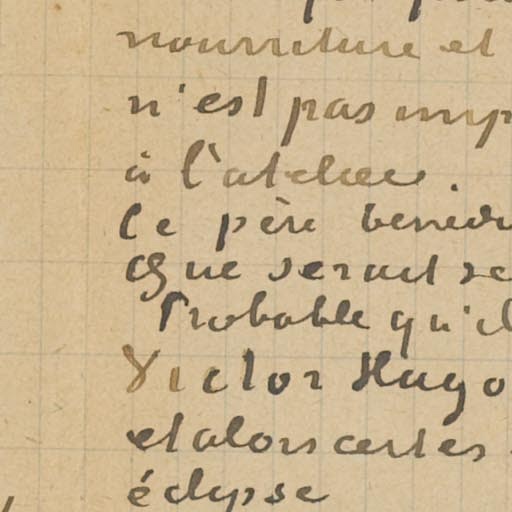 nourriture et
n'est pas imp
à l'atelier.
Le père
que serait se
Probable qu'il
Victor Hugo
et alors certes
éclipse